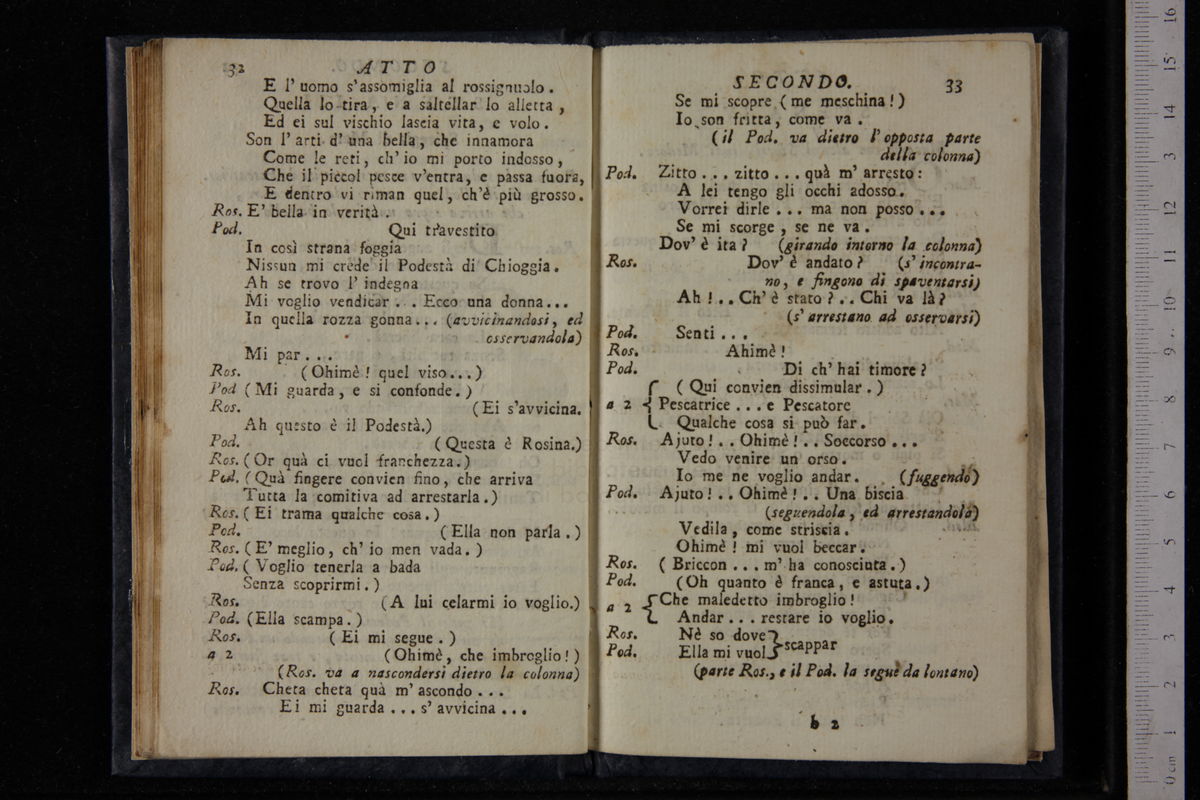 32
ATTO
E l' uomo s'assomiglia al rossignuolo.
Quella lo tira, e a saltellar lo alletta,
Ed ei sul vischio lascia vita, e volo.
Son l' arti d' una bella, che innamora
Come le reti, ch' io mi porto indosso,
Che il piccol pesce v'entra, e passa fuora,
E dentro vi riman quel, ch'è più grosso.
Ros. E' bella in verità.
Pod. Qui travestito
In così strana foggia
Nissun mi crede il Podestà di Chioggia.
Ah se trovo l' indegna
Mi voglio vendicar... Ecco una donna...
In quella rozza gonna... (avvicinandosi, ed
osservandola)
Mi par...
Ros. (Ohimè! quel viso...)
Pod (Mi guarda, e si confonde.)
Ros. (Ei s'avvicina.
Ah questo è il Podestà.)
Pod. (Questa è Rosina.)
Ros. (Or quà ci vuol franchezza.)
Pod. (Quà fingere convien fino, che arriva
Tutta la comitiva ad arrestarla.)
Ros. (Ei trama qualche cosa.)
Pod. (Ella non parla.)
Ros. (E' meglio, ch' io men vada.)
Pod. (Voglio tenerla a bada
Senza scoprirmi.)
Ros. (A lui celarmi io voglio.)
Pod. (Ella scampa.)
Ros. (Ei mi segue.)
a 2 (Ohimè, che imbroglio!)
(Ros. va a nascondersi dietro la colonna)
Ros. Cheta cheta quà m' ascondo...
Ei mi guarda... s' avvicina...
SECONDO.
33
Se mi scopre (me meschina!)
Io son fritta, come va.
(il Pod. va dietro l' opposta parte
della colonna)
Pod. Zitto... zitto... quà m' arresto:
A lei tengo gli occhi adosso.
Vorrei dirle... ma non posso...
Se mi scorge, se ne va.
Dov' è ita? (girando intorno la colonna)
Ros. Dov' è andato? (s' incontra-
no, e fingono di spaventarsi)
Ah!.. Ch' è stato?.. Chi va là?
(s' arrestano ad osservarsi)
Pod. Senti...
Ros. Ahimè!
Pod. Di ch' hai timore?
(Qui convien dissimular.)
a 2 { Pescatrice... e Pescatore
Qualche cosa si può far.
Ros. Ajuto!.. Ohimè!.. Soccorso...
Vedo venire un orso.
Io me ne voglio andar. (fuggendo)
Pod. Ajuto!.. Ohimè!.. Una biscia
(seguendola, ed arrestandola)
Vedila, come striscia.
Ohimè! mi vuol beccar.
Ros. (Briccon... m' ha conosciuta.)
Pod. (Oh quanto è franca, e astuta.)
a 2 { Che maledetto imbroglio!
Andar... restare io voglio.
Ros. Nè so dove } scappar
Pod. Ella mi vuol
(parte Ros., e il Pod. la segue da lontano)
b 2